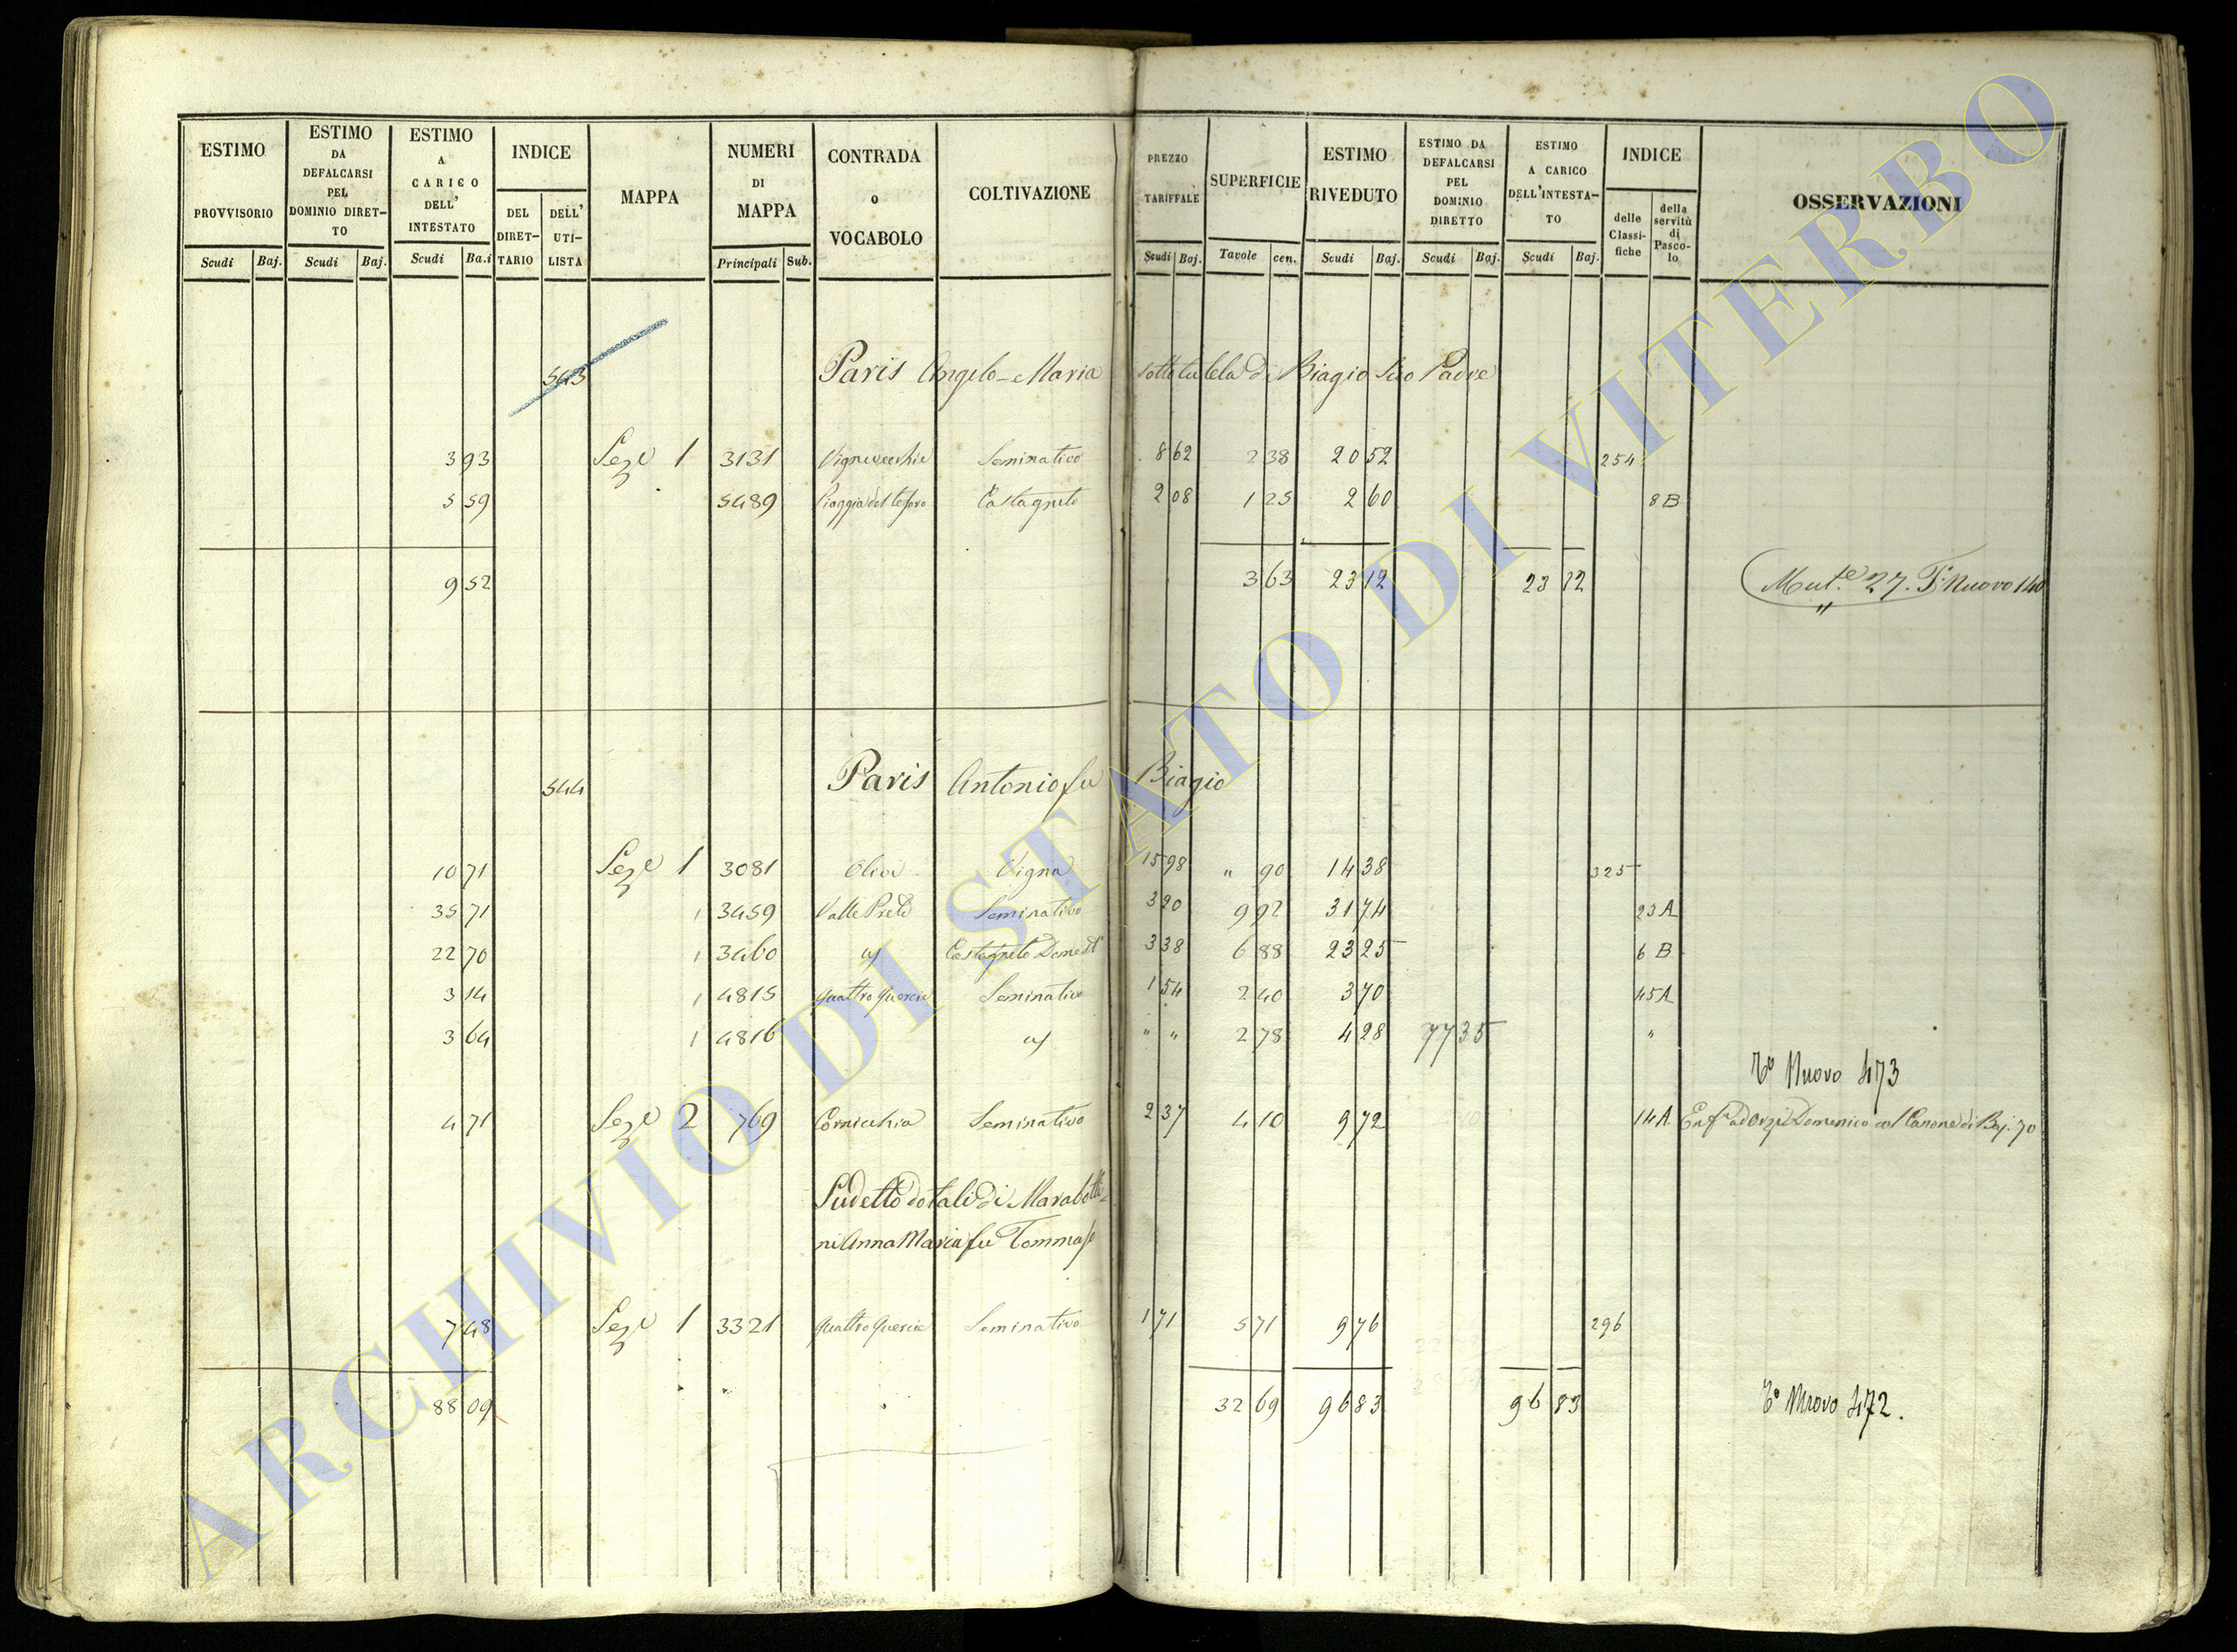 ESTIMO PROVVISORIO Scudi Baj.
ESTIMO DA DEFALCARSI PEL DOMINIO DIRET-TO Scudi Baj.
ESTIMO A CARICO DELL' INTESTATO Scudi Ba.i
INDICE DEL DIRET-TARIO DELL' UTI-LISTA
MAPPA
NUMERI DI MAPPA Principali Sub.
CONTRADA o VOCABOLO
COLTIVAZIONE
PREZZO TARIFFALE Scudi Baj.
SUPERFICIE Tavole cen.
ESTIMO RIVEDUTO Scudi Baj.
ESTIMO DA DEFALCARSI PEL DOMINIO DIRETTO Scudi Baj.
ESTIMO A CARICO DELL'INTESTA-TO Scudi Baj.
INDICE delle Classi-fiche della servitù di Pasco-lo
OSSERVAZIONI
543 Paris Angelo-Maria sotto tutela di Biagio Suo Padre
3 93 Seze 1 3131 Vignevecchie Seminativo 8 62 2 38 20 52 254
5 59 5489 Piaggia del tesoro Castagneto 2 08 1 25 2 60 8 B
9 52 3 63 23 12 23 12 Mut.e 27. T. Nuovo 140
544 Paris Antonio fu Biagio
10 71 Seze 1 3081 Vigna 15 98 " 90 14 38 325
35 71 1 3459 Valle Prete Seminativo 3 20 9 92 31 74 23 A
22 70 1 3460 Castagneto Domest 3 38 6 88 23 25 6 B
3 14 1 4815 quattro quercie Seminativo 1 54 2 40 3 70 45 A
3 64 1 4816 " " 2 78 4 28 77 35 "
Tº Nuovo 473
4 71 Seze 2 769 Cornicchia Seminativo 2 37 4 10 9 72 14 A Enf.a ad Orzi Domenico col Canone di Baj. 70
Sudetto dotali di Marabotti-
ni Anna Maria fu Tommaso
7 48 Seze 1 3321 quattro quercie Seminativo 1 71 5 71 9 76 296
88 09 32 69 96 83 96 83 Tº Nuovo 472.
ARCHIVIO DI STATO DI VITERBO